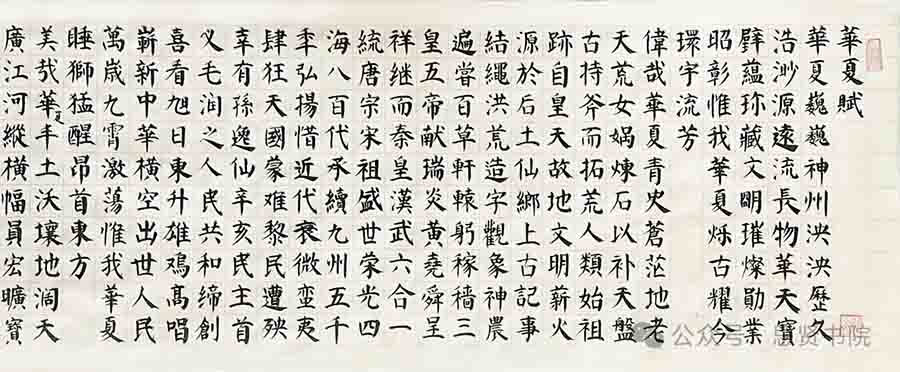 華夏賦
華夏巍巍神州泱泱歷久
浩渺源遠流長物華天寶
蘊珎藏文明璀燦勛業
昭彰惟我華夏烁古耀今
環宇流芳
偉哉華夏青史蒼茫地老
天荒女娲煉石以补天盤
古持斧而拓荒人類始祖
跡自皇天故地文明薪火
源於后土仙鄉上古記事
結繩洪荒造字觀象神農
遍嘗百草軒轅躬稼穡三
皇五帝献瑞炎黄堯舜呈
祥继而秦皇漢武六合一
統唐宗宋祖盛世荣光四
海八百代承續九州五千
秊弘揚惜近代衰微蛮夷
肆狂天國蒙难黎民遭殃
幸有孫逸仙辛亥民主首
义毛润之人民共和缔創
喜看旭日東升雄鳮高唱
嶄新中華横空出世人民
萬歳九霄激荡惟我華夏
睡獅猛醒昂首東方
美哉華夏丰土沃壤地阔天
廣江河縱橫幅員宏曠寶
公众号·思贤书院